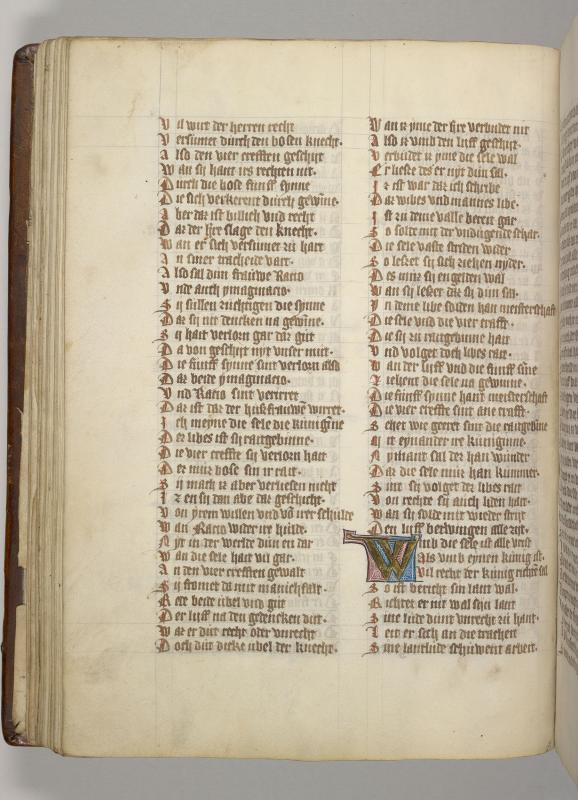 V il wirt der herren recht
V ersumet durch den bosen knecht·
A lso den vier crefften geschiit
W an sy hant irs rechten nit·
D urch die bose funff synne
D ie sich verkerent durch gewyne·
A ber daz ist billich und recht
D az der hre slage den knecht·
W an er sich versumet zu hart
A n siner tracheide vart·
A lso sal dun frauwe Racio
V nde auch ymaginacio·
S ij sullen zuchtigen die synne
D az sij nit dencken na gewyne·
S ij hait verlorn gar daz gut
D a von geschyt nyt unser mut·
D ie funff synne sint verlorn also
D az beide ymaginacio·
V nd Racio sint verirret
D az ist daz der huszfrauwen wirret·
I ch meyne die sele die kunigine
D es libes ist sy raitgebinne·
D ie vier creffte sij verlorn hait
D er muz bose sin ir rait·
S ij mach iz aber verliesen nicht
I z en sy dan abe daz geschicht·
V on yrem willen und von irer schulde
W an Racio weder ir hulde·
N yt in der werlde dun en dar
W an die sele hait vil gar·
A n den vier crefften gewalt
S ij fromet da mit manichfalt·
R ede beide ubel und gut
D er lyff na den gedencken dut·
W az er dut recht oder unrecht
D och dut dicke ubel der knecht·
W an iz yme der hre verbudet nit
A lso iz umb den lyff geschyt·
V erbudet iz yme die sele wal
E r liesze des er nyt dun sal·
I z ist war daz ich schribe
D az wibes und mannes libe·
I st zu deme valle bereit gar
S o solde mit der dugende schar·
D ie sele vaste striden wider
S o liesze sij sich ziehen nyder·
D es muz sij engelden wal
W an sij liesze daz sij dun sal·
I n deme libe solden han meisterschaft
D ie sele und die vier crafft·
D ie sij zu raitgebinne hait
V nd volget doch libes rait·
W an der lyff und die funff sinne
Z iehent die sele na gewinne·
D ie funff synne hant meisterschaft
D ie vier creffte sint ane crafft·
S ehet wie geeret sint die raitgebine
M it eynander ire kuniginne·
N ymant sal des han wunder
D az die sele muz han kummer·
S int sij volget des libes rait
V on rechte sij auch liden hait·
W an sij solde mit wieder strijt
D en lyff betwingen alle zijt·
W ante die sele ist alle meist
als umb eynen kunig ist·
vil recht der kunig richten sal
S o ist bericht sin lant wal·
R ichtet er nit wal sin lant
S ine lude dunt unrecht zu hant·
L eit er sich an die tracheit
S ine lantlude schuwent arbeit·